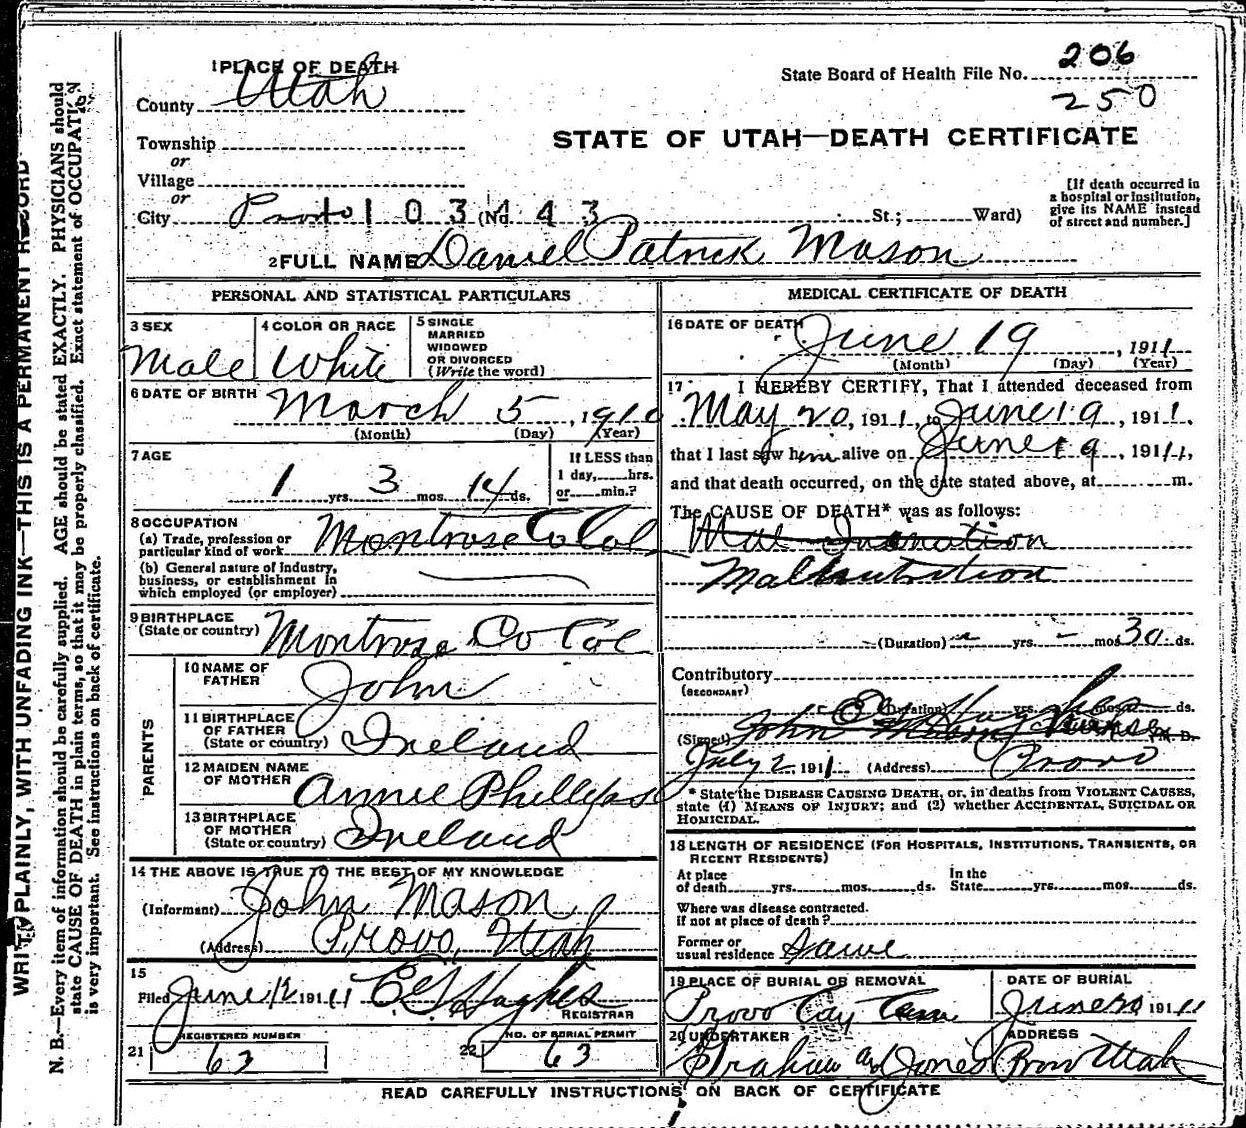 206
State Board of Health File No.
250
1 PLACE OF DEATH
County Utah
STATE OF UTAH—DEATH CERTIFICATE
Township
or
Village
or
City Provo 103443 (No. St.; Ward)
[If death occurred in
a hospital or institution,
give its NAME instead
of street and number.]
2 FULL NAME Daniel Patrick Mason
PERSONAL AND STATISTICAL PARTICULARS
3 SEX
Male
4 COLOR OR RACE
White
5 SINGLE
MARRIED
WIDOWED
OR DIVORCED
(Write the word)
6 DATE OF BIRTH
March 5, 1910
(Month) (Day) (Year)
7 AGE
1 yrs. 3 mos. 14 ds.
If LESS than
1 day, hrs.
or min.?
8 OCCUPATION
(a) Trade, profession or
particular kind of work Montrose Co Col
(b) General nature of industry,
business, or establishment in
which employed (or employer)
9 BIRTHPLACE
(State or country) Montrose Co Col
PARENTS
10 NAME OF
FATHER John
11 BIRTHPLACE
OF FATHER
(State or country) Ireland
12 MAIDEN NAME
OF MOTHER Annie Phillips
13 BIRTHPLACE
OF MOTHER
(State or country) Ireland
14 THE ABOVE IS TRUE TO THE BEST OF MY KNOWLEDGE
(Informant) John Mason
(Address) Provo, Utah
15
Filed June 12 1911 Hughes
REGISTRAR
REGISTERED NUMBER
21 63
NO. OF BURIAL PERMIT
22 63
MEDICAL CERTIFICATE OF DEATH
16 DATE OF DEATH
June 19, 1911
(Month) (Day) (Year)
17 I HEREBY CERTIFY, That I attended deceased from
May 20, 1911, to June 19, 1911,
that I last saw him alive on June 19, 1911,
and that death occurred, on the date stated above, at m.
The CAUSE OF DEATH* was as follows:
Mal
Malnutrition
(Duration) yrs. mos. 30 ds.
Contributory
(SECONDARY)
(Duration) yrs. mos. ds.
(Signed) John Mason Hughes M. D.
July 2, 1911 (Address) Provo
* State the DISEASE CAUSING DEATH, or, in deaths from VIOLENT CAUSES,
state (1) MEANS OF INJURY; and (2) whether ACCIDENTAL, SUICIDAL OR
HOMICIDAL.
18 LENGTH OF RESIDENCE (FOR HOSPITALS, INSTITUTIONS, TRANSIENTS, OR
RECENT RESIDENTS)
At place
of death yrs. mos. ds.
In the
State yrs. mos. ds.
Where was disease contracted.
if not at place of death?
Former or
usual residence Same
19 PLACE OF BURIAL OR REMOVAL
Provo City Cem
DATE OF BURIAL
June 20 1911
20 UNDERTAKER
Graham and Jones
ADDRESS
Provo Utah
READ CAREFULLY INSTRUCTIONS ON BACK OF CERTIFICATE
WRITE PLAINLY, WITH UNFADING INK—THIS IS A PERMANENT RECORD
N. B.—Every item of information should be carefully supplied. AGE should be stated EXACTLY. PHYSICIANS should
state CAUSE OF DEATH in plain terms, so that it may be properly classified. Exact statement of OCCUPATION
is very important. See instructions on back of certificate.